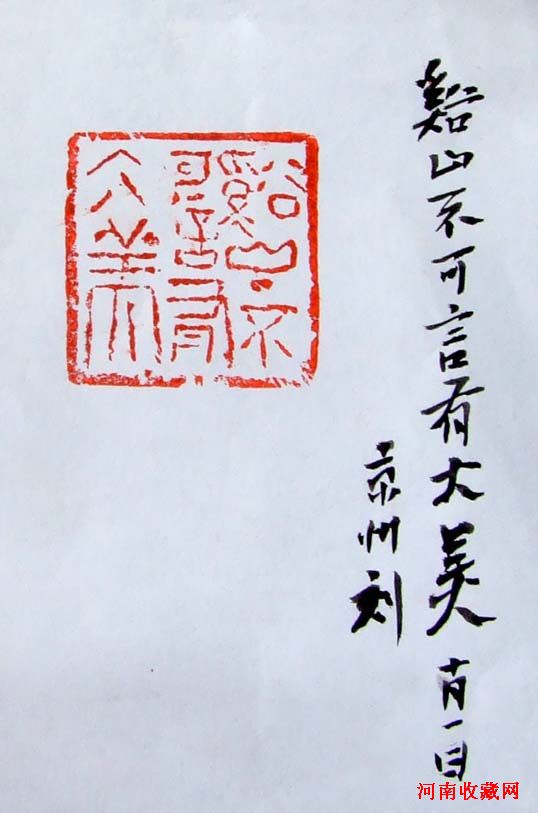 谿山不可言有大美 十月一日
京州刻
谿山不
可言有
大美
河南收藏网